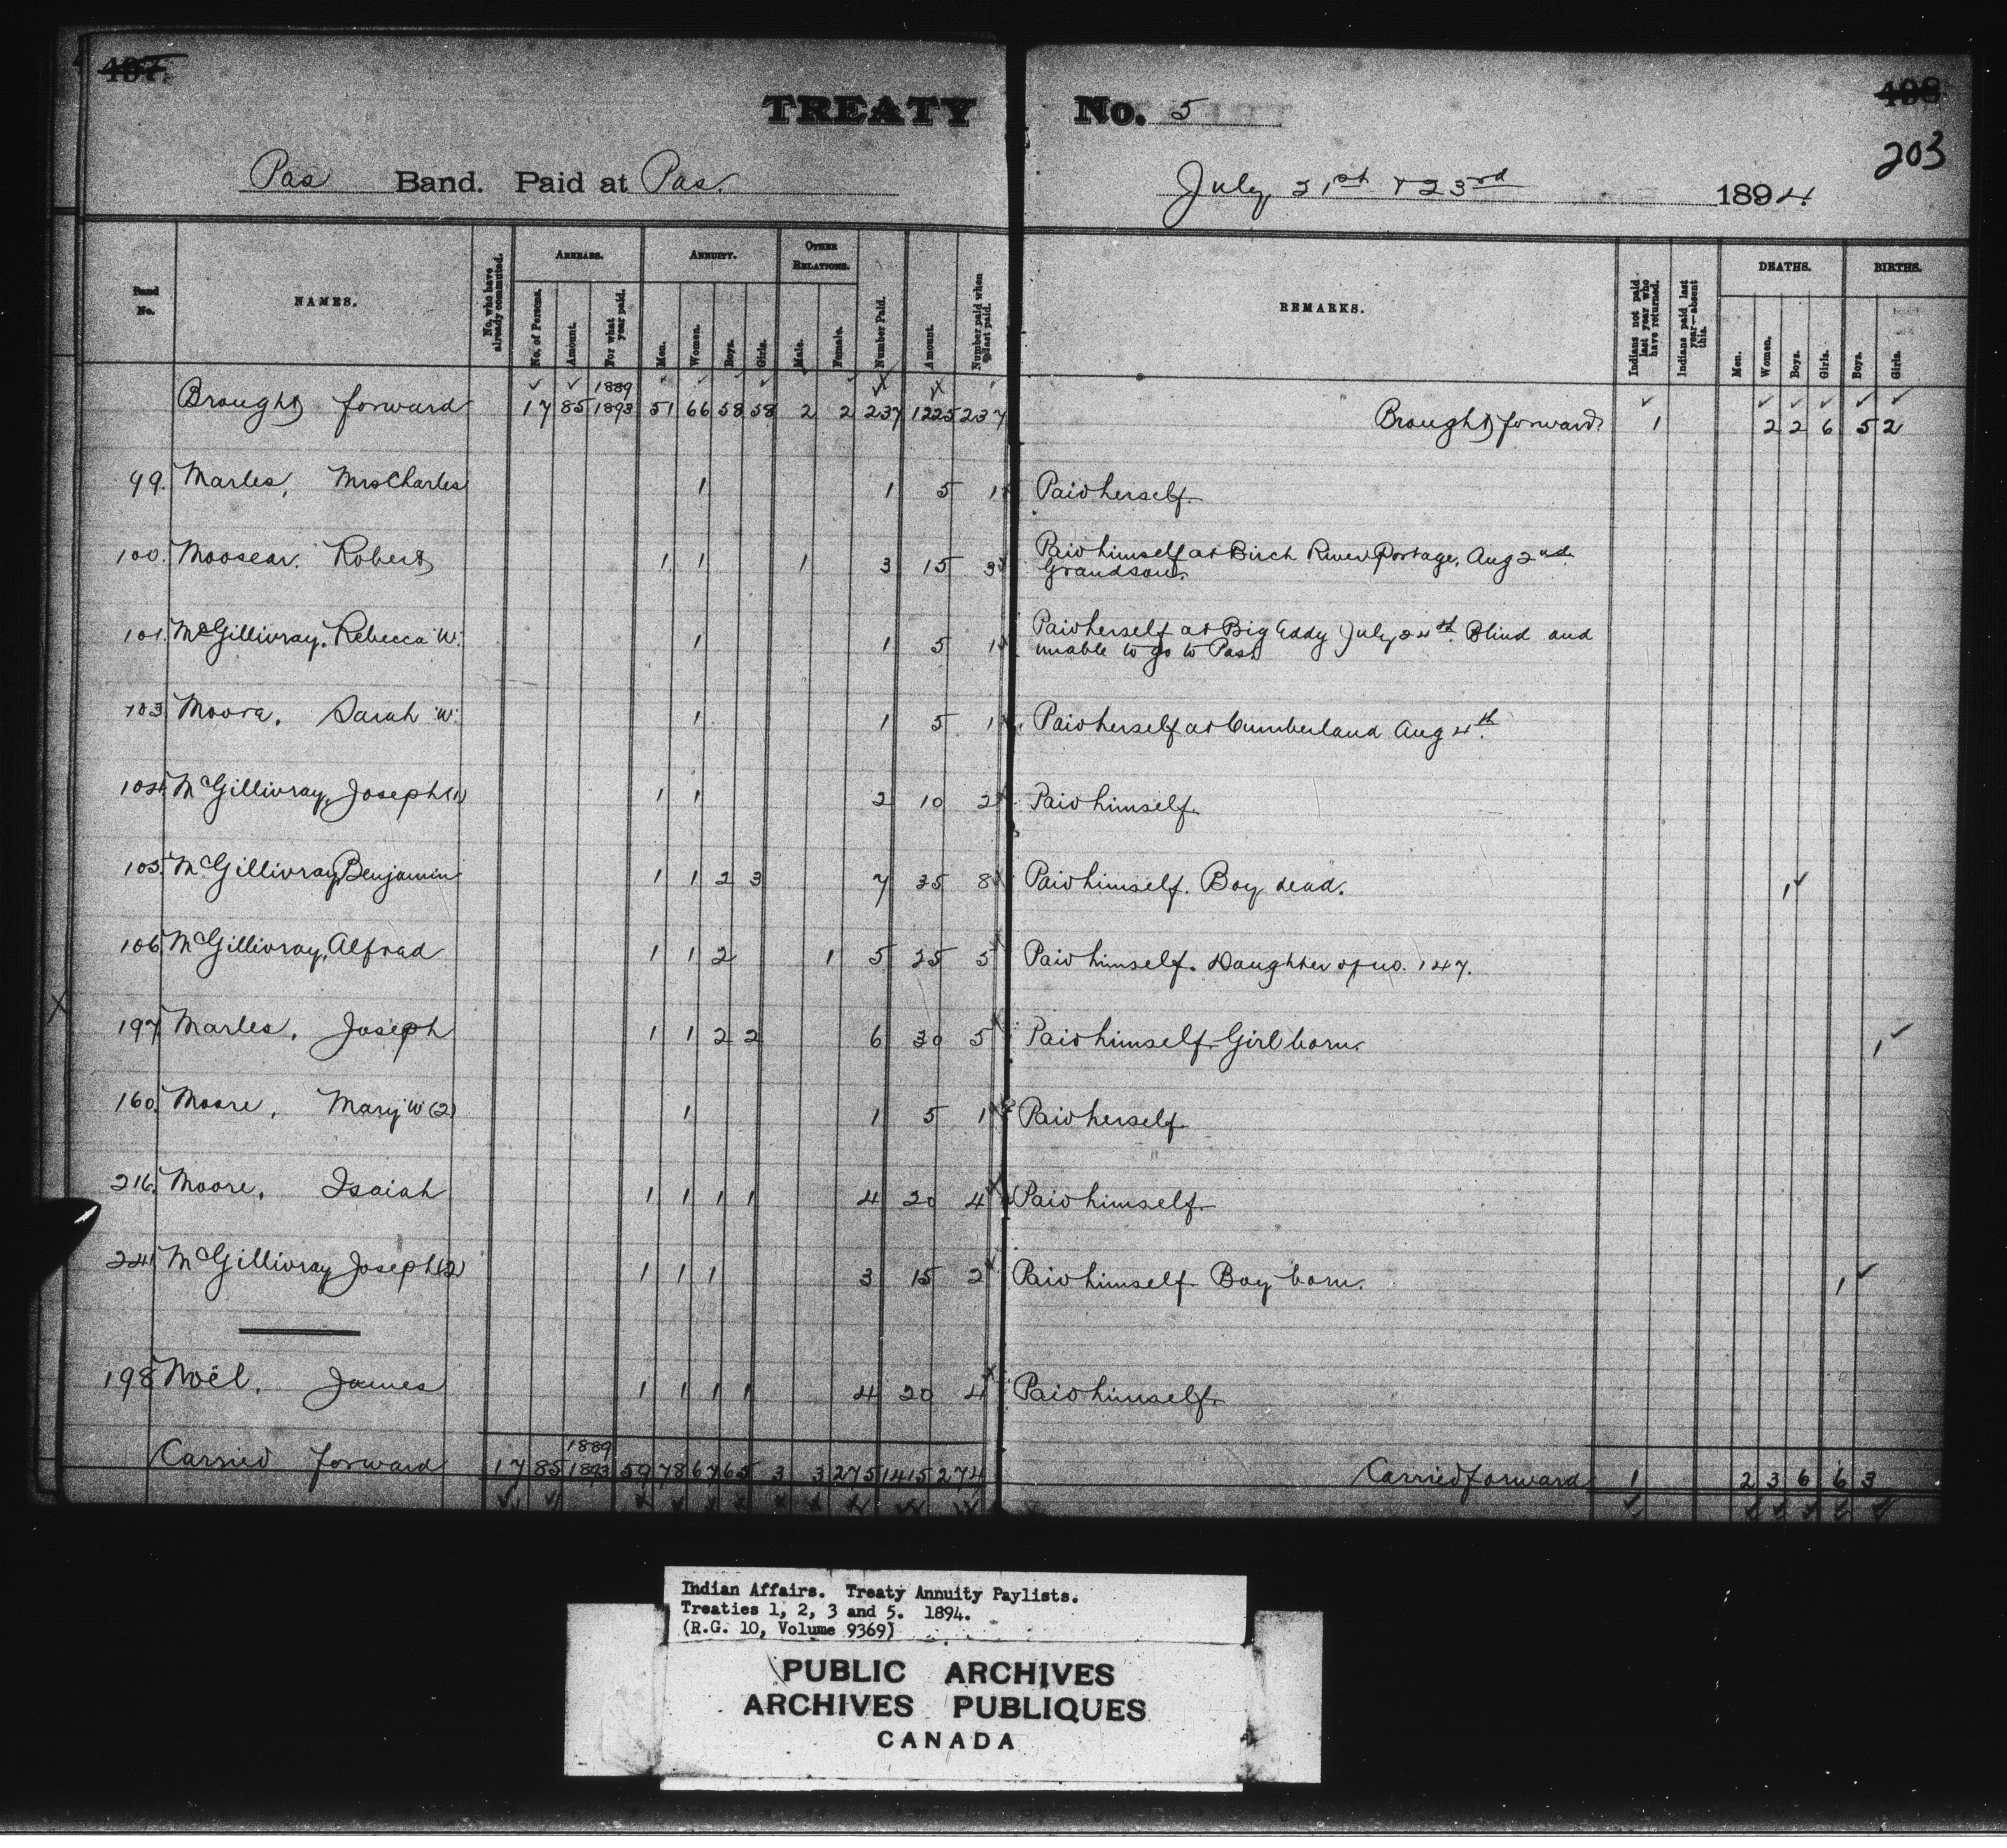 497. 498
203
TREATY No. 5
Pas Band. Paid at Pas. July 21st & 23rd 1894
Band No. NAMES. No. who have already commuted. ARREARS. No. of Persons. Amount. For what year paid. ANNUITY. Men. Women. Boys. Girls. OTHER RELATIONS. Male. Female. Number Paid. Amount. Number paid when last paid. REMARKS. Indians not paid last year who have returned. Indians paid last year—absent this. DEATHS. Men. Women. Boys. Girls. BIRTHS. Boys. Girls.
1889
Brought forward 17 85 1893 51 66 58 58 2 2 237 1225 237 Brought forward 1 2 2 6 5 2
99. Marles, Mrs Charles 1 1 5 1 Paid herself.
100. Moosear. Robert 1 1 1 3 15 3 Paid himself at Birch River Portage, Aug 2nd.
Grandson.
101. McGillivray, Rebecca "W" 1 1 5 1 Paid herself at Big Eddy July 24th. Blind and
unable to go to Pas.
103 Moore, Sarah "W" 1 1 5 1 Paid herself at Cumberland Aug 4th.
104. McGillivray, Joseph (1) 1 1 2 10 2 Paid himself.
105. McGillivray, Benjamin 1 1 2 3 7 35 8 Paid himself. Boy dead. 1
106. McGillivray, Alfred 1 1 2 1 5 25 5 Paid himself. Daughter of no. 147.
197. Marles, Joseph 1 1 2 2 6 30 5 Paid himself. Girl born. 1
160. Moore, Mary "W" (2) 1 1 5 1 Paid herself.
216. Moore, Isaiah 1 1 1 1 4 20 4 Paid himself.
241. McGillivray Joseph (2) 1 1 1 3 15 2 Paid himself. Boy born. 1
198 Noël, James 1 1 1 1 4 20 4 Paid himself.
1889
Carried forward 17 85 1893 59 78 67 65 3 3 275 1415 274 Carried forward 1 2 3 6 6 3
Indian Affairs. Treaty Annuity Paylists.
Treaties 1, 2, 3 and 5. 1894.
(R.G. 10, Volume 9369)
PUBLIC ARCHIVES
ARCHIVES PUBLIQUES
CANADA